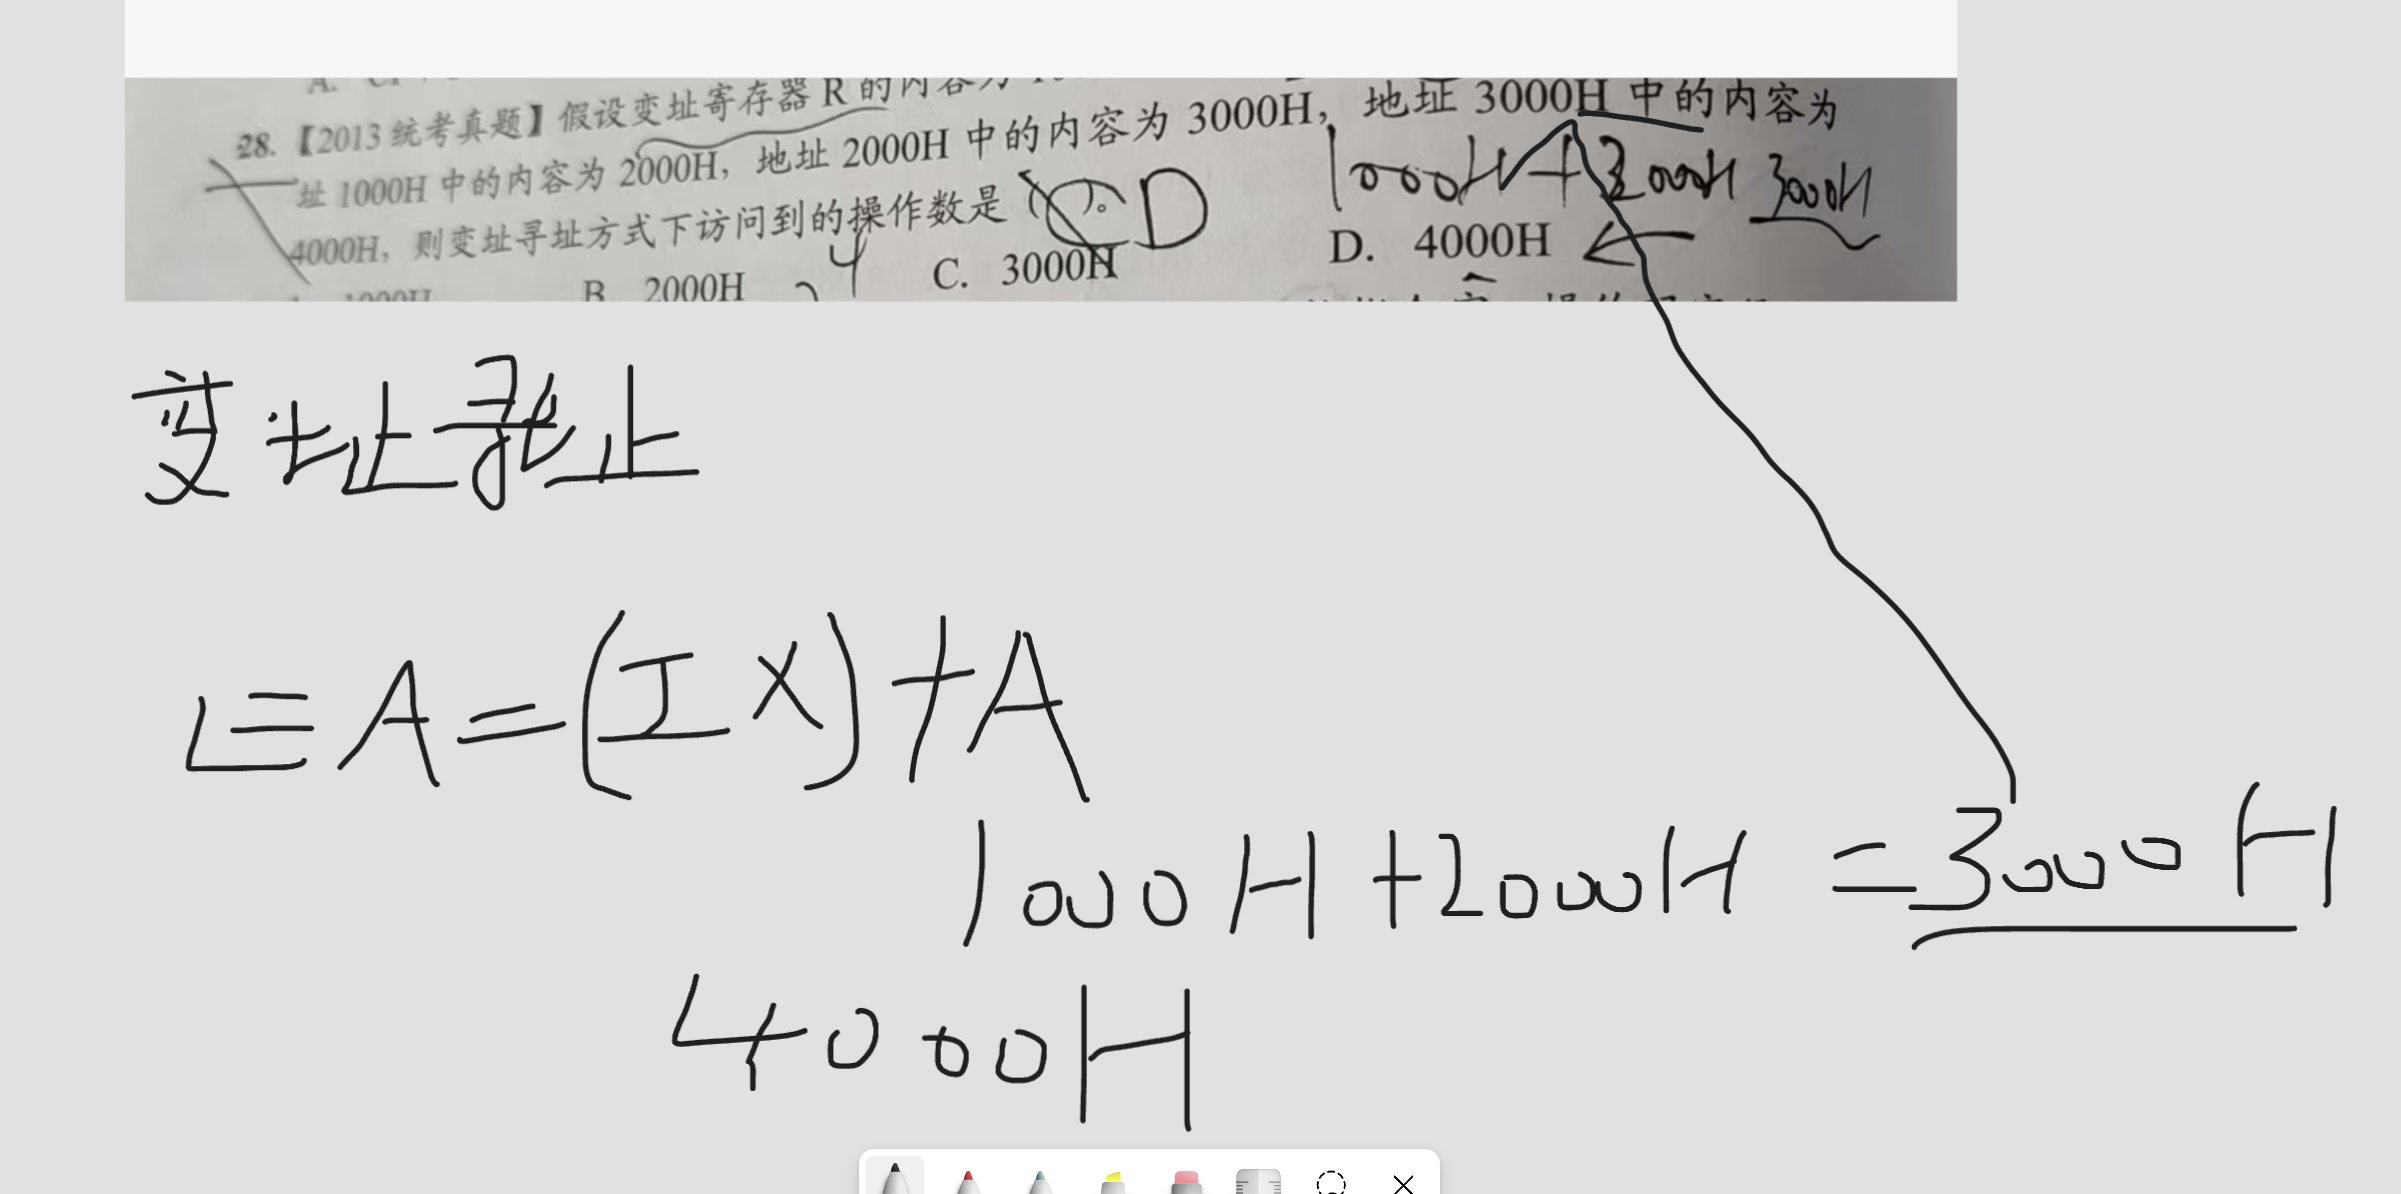 28.【2013 统考真题】假设变址寄存器 R 的内容为
址 1000H 中的内容为 2000H，地址 2000H 中的内容为 3000H，地址 3000H 中的内容为
4000H，则变址寻址方式下访问到的操作数是（ ）。D
1000H + 2000H 3000H
B 2000H
4
C. 3000H
D. 4000H
变址寻址
EA=(IX)+A
1000H+2000H=3000H
4000H